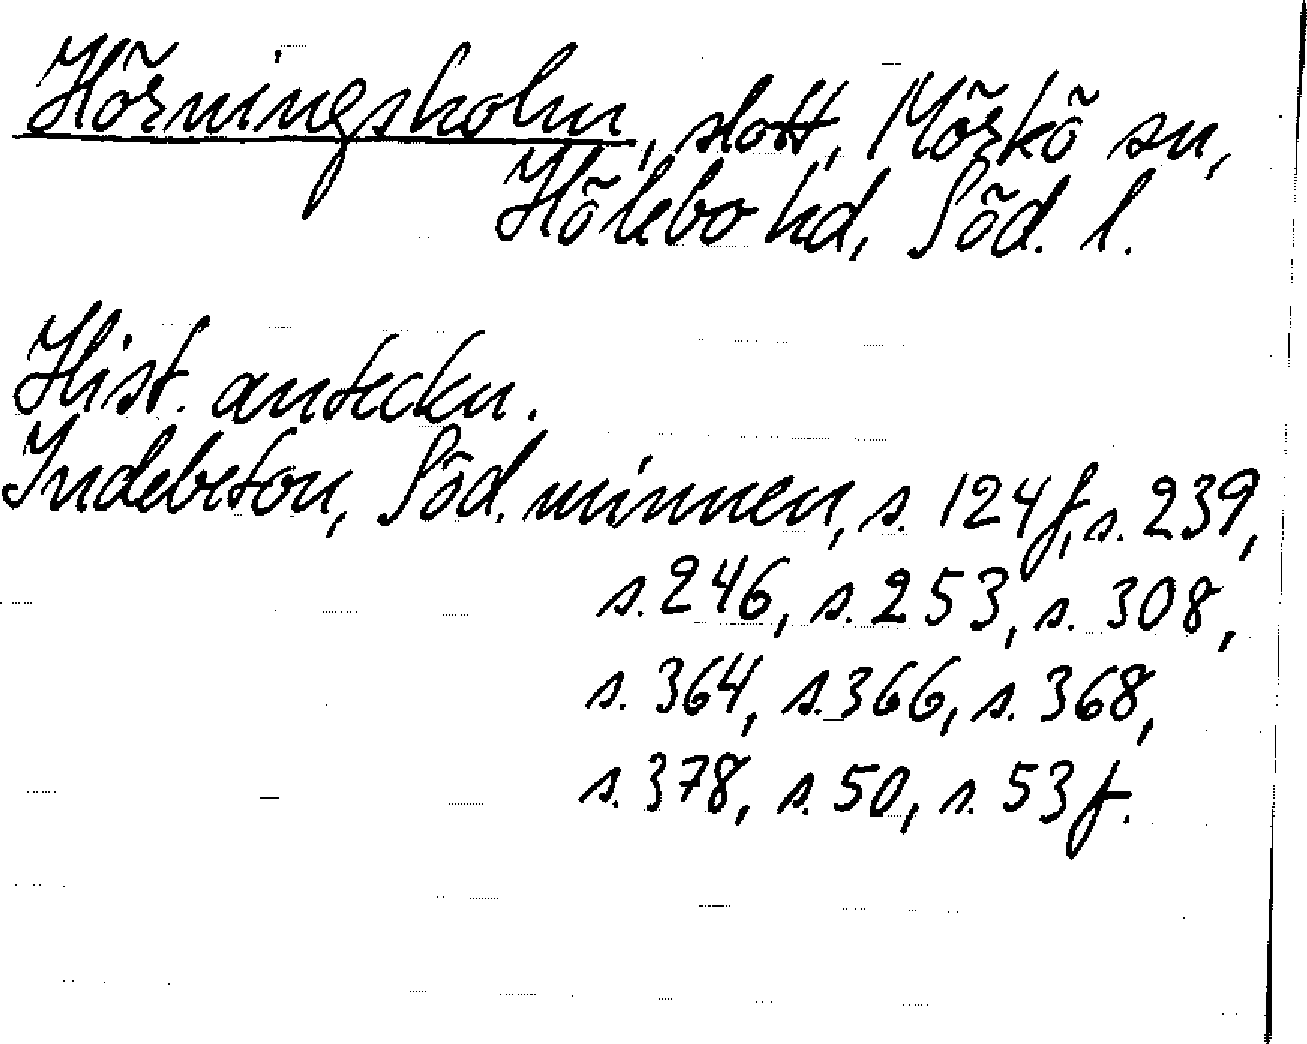 Hörningsholm, slott, Mörkö sn,
Hölebo hd, Söd. l.
Hist. anteckn.
Indebetou, Söd. minnen, s. 124 f, s. 239,
s. 246, s. 253, s. 308,
s. 364, s. 366, s. 368,
s. 378, s. 50, s. 53 f.